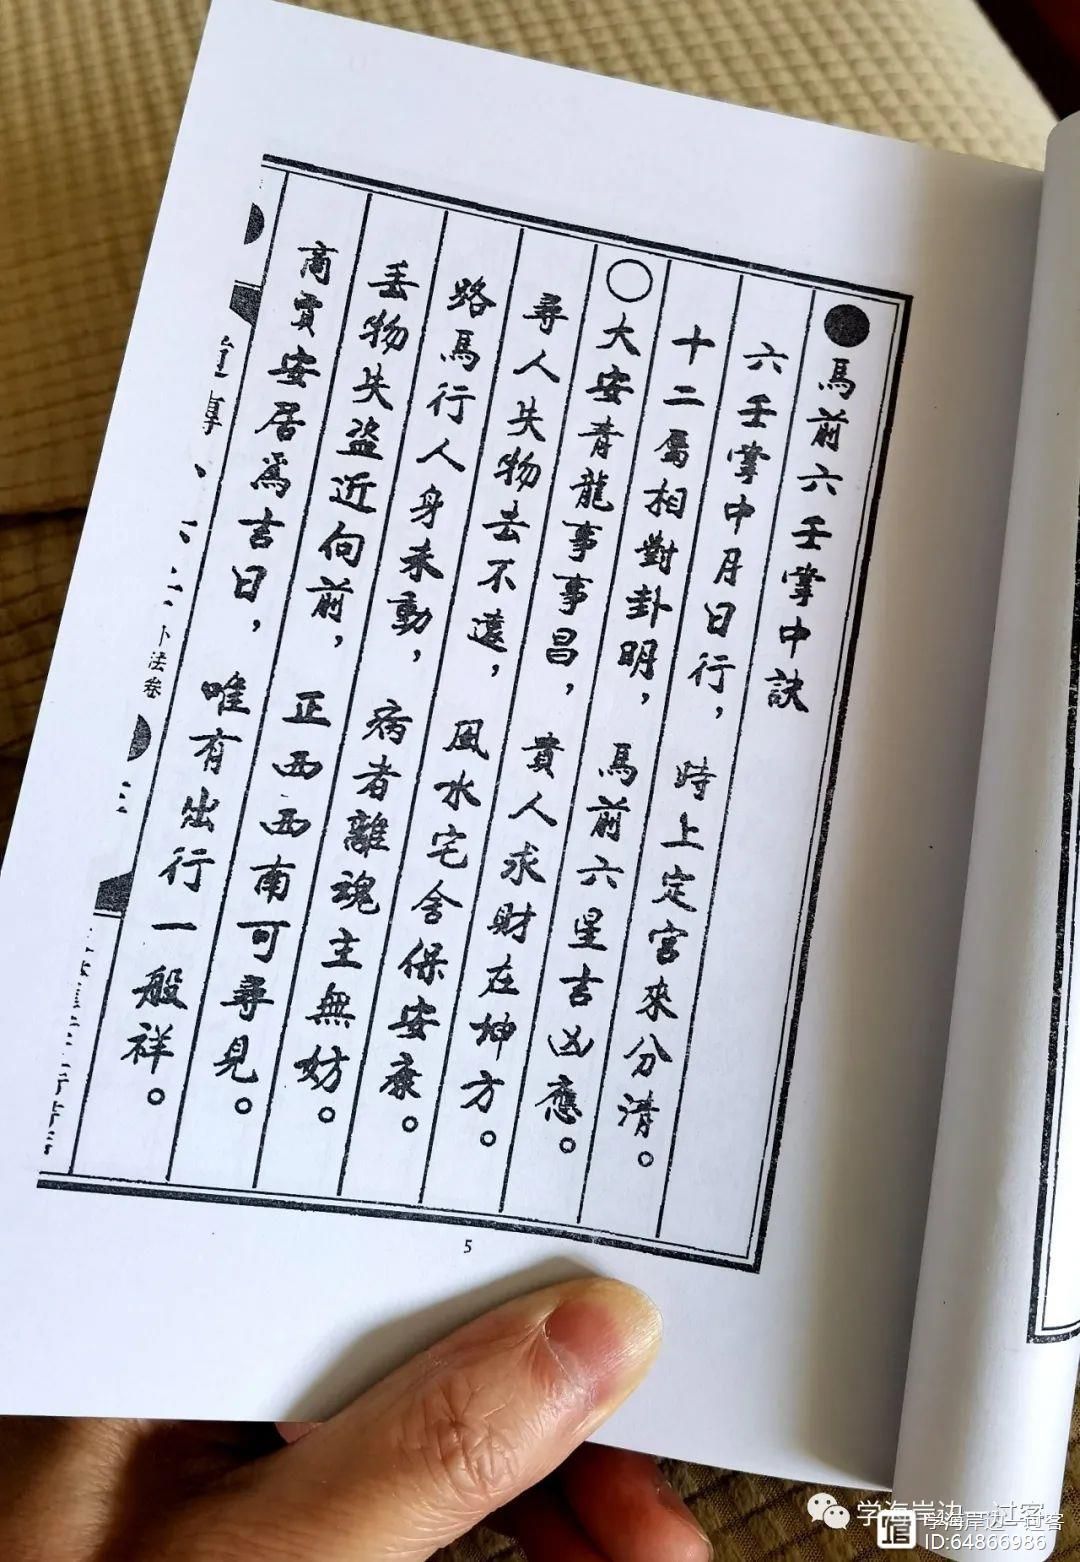 ●馬前六壬掌中訣
六壬掌中月日行，時上定宮來分清。
十二屬相對卦明，馬前六星吉凶應。
○大安青龍事事昌，貴人求財在坤方。
尋人失物去不遠，風水宅舍保安康。
路馬行人身未動，病者離魂主無妨。
丢物失盜近向前，正西西南可尋見。
商賈安居為吉日，唯有出行一般祥。
卜法卷
5
学海岸边一过客
学海岸边一过客
ID:64866986